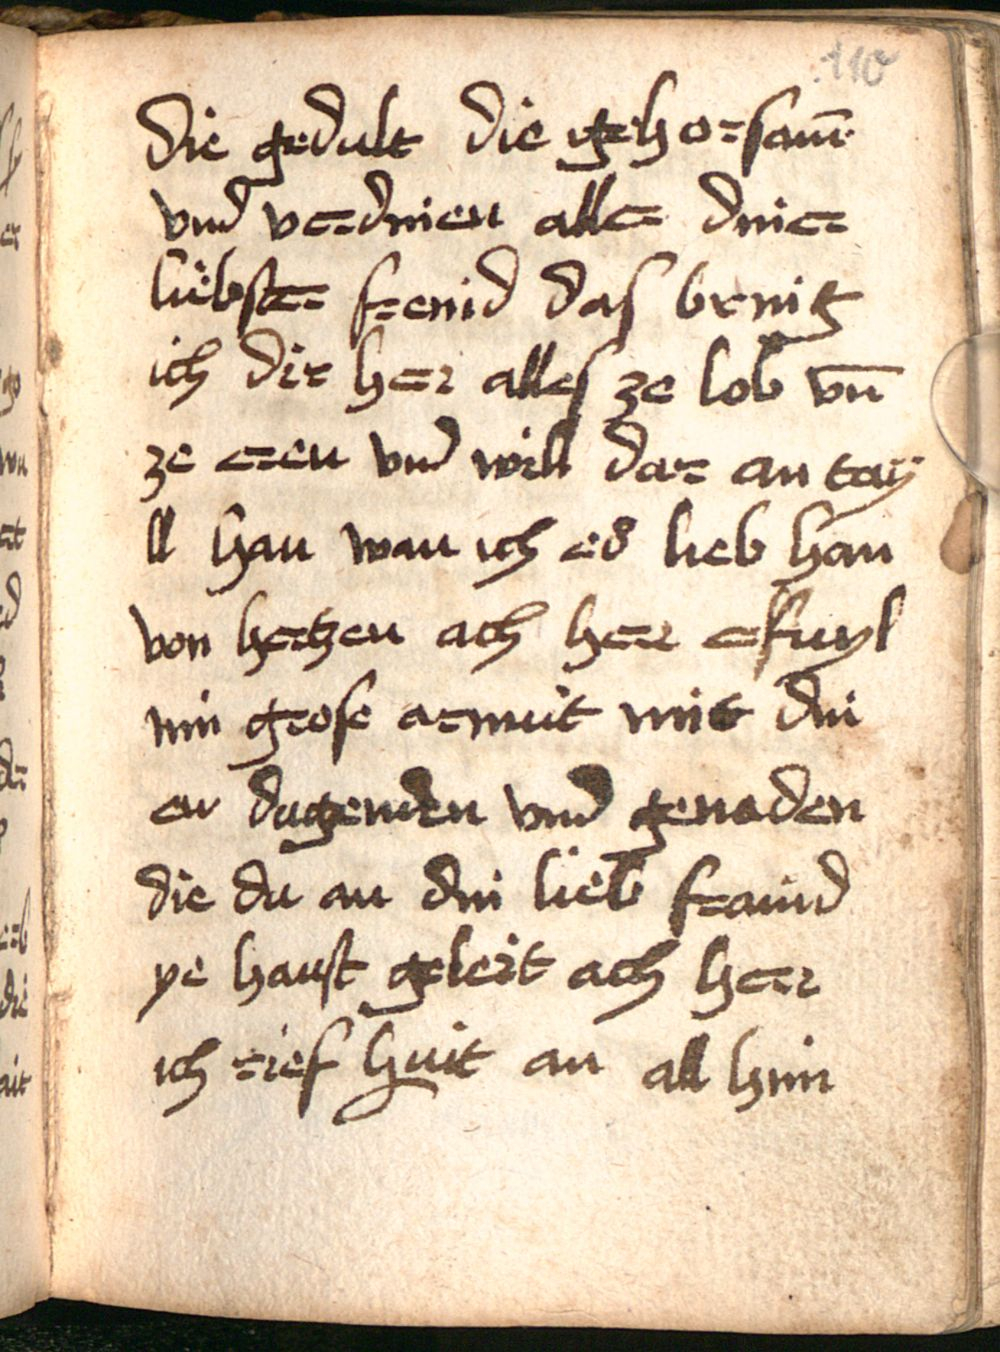 110
die gedult die gehorsam̄
vnd verdnien aller dnier
liebster frenid das brnig
ich dir herr alles ze lob vn̄
ze eren vnd will dar an tay
ll han wan ich es lieb han
von hertzen ach herr erfuyl
min grose armuit mit dni
er dugenden vnd genaden
die du an dni lieb fraind
ye haust geleit ach herr
ich rief huit an all himi